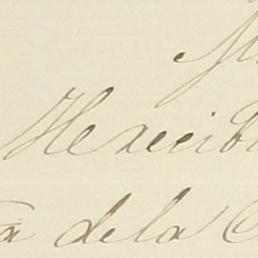 He recib
a de la